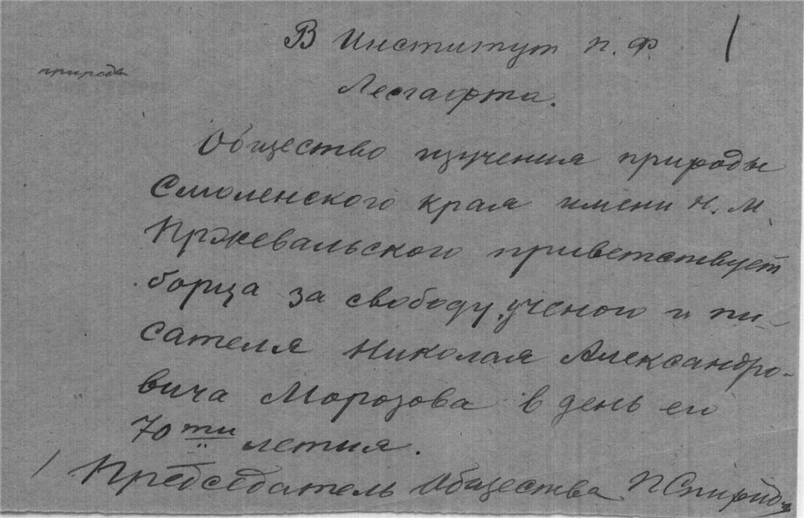 В Институт П. Ф. /
природы
Лесгафта.
Общество изучения природы
Смоленского края имени Н. М.
Пржевальского приветствует
борца за свободу, ученого и пи-
сателя Николая Александро-
вича Морозова в день его
70ти летия.
/ Председатель Общества П Спириду